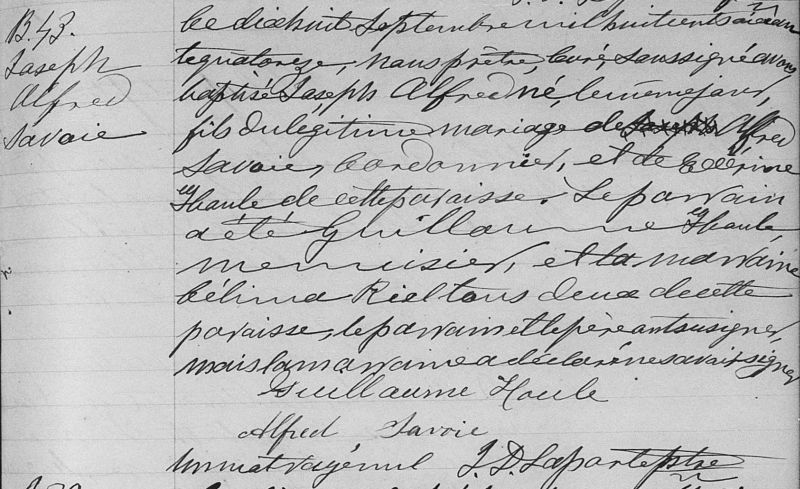 B.43.
Joseph
Alfred
Savoie
Le dixhuit Septembre mil huit cent soixan
te quatorze, nous prêtre, curé soussigné avons
baptisé Joseph Alfred né, le même jour,
fils du légitime mariage de Alfred
Savoie, cordonnier, et de
Houle de cette paroisse. Le parrain
a été Guillaume Houle,
menuisier, et la marraine
Célima Riel tous deux de cette
paroisse, le parrain et le père ont su signer,
mais la marraine a déclaré ne savoir signer
Guillaume Houle
Alfred Savoie
Un mot rayé nul J. D. Laporte ptre